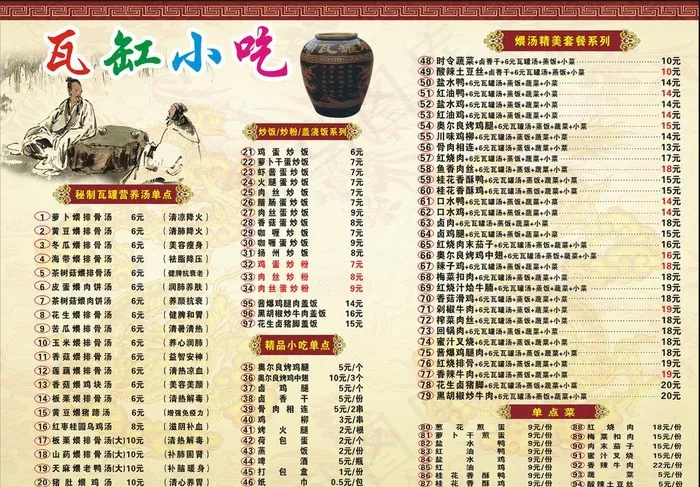 瓦缸小吃
秘制瓦罐营养汤单点
1 萝卜煨排骨汤 6元 (清凉降火)
2 黄豆煨排骨汤 6元 (清肺降火)
3 冬瓜煨排骨汤 6元 (美容瘦身)
4 海带煨排骨汤 6元 (祛脂降压)
5 茶树菇煨排骨汤 6元 (健脾抗衰老)
6 皮蛋煨肉饼汤 6元 (润肺养颜)
7 茶树菇煨肉饼汤 6元 (养颜抗衰)
8 花生煨排骨汤 6元 (健脾和胃)
9 苦瓜煨排骨汤 6元 (清暑清热)
10 玉米煨排骨汤 6元 (养心润肺)
11 香菇煨排骨汤 6元 (益智安神)
12 莲藕煨排骨汤 6元 (清热凉血)
13 香菇煨鸡块汤 6元 (美容美颜)
14 板栗煨排骨汤 6元 (清热解毒)
15 黄豆煨猪蹄汤 7元 (增强免疫力)
16 红枣桂圆乌鸡汤 8元 (滋阴补血)
17 板栗煨排骨汤(大)10元 (清热解毒)
18 山药煨排骨汤(大)10元 (补肺固肾)
19 天麻煨老鸭汤(大)10元 (补脑暖身)
20 猪肚煨鸡汤 10元 (清心养胃)
炒饭/炒粉/盖浇饭系列
21 鸡蛋炒饭 6元
22 萝卜干蛋炒饭 7元
23 虾酱蛋炒饭 7元
24 火腿蛋炒饭 7元
25 肉丝炒饭 7元
26 腊肠蛋炒饭 8元
27 肉丝蛋炒饭 9元
28 香菇蛋炒饭 8元
29 咖喱炒饭 7元
30 咖喱蛋炒饭 9元
31 扬州炒饭 8元
32 鸡蛋炒粉 7元
33 肉丝炒粉 8元
34 肉丝蛋炒粉 9元
95 酱爆鸡腿肉盖饭 14元
96 黑胡椒炒牛肉盖饭 16元
97 花生卤猪脚盖饭 16元
精品小吃单点
35 奥尔良烤鸡腿 5元/个
36 奥尔良烤鸡中翅 10元/3个
37 卤鸡腿 5元/个
38 卤香干 5元/份
39 骨肉相连 5元/2串
40 鸡柳 3元/串
41 烤火腿 2元/根
42 荷包蛋 2元/个
43 蒸饭 2元/份
44 啤酒 5元/瓶
45 打包盒 1元/份
46 纸巾 0.5元/包
煨汤精美套餐系列
48 时令蔬菜+卤香干+6元瓦罐汤+蒸饭+小菜 10元
49 酸辣土豆丝+卤香干+6元瓦罐汤+蒸饭+小菜 10元
50 盐水鸭+6元瓦罐汤+蒸饭+蔬菜+小菜 14元
51 红油鸭+6元瓦罐汤+蒸饭+蔬菜+小菜 14元
52 盐水鸡+6元瓦罐汤+蒸饭+蔬菜+小菜 14元
53 红油鸡+6元瓦罐汤+蒸饭+蔬菜+小菜 14元
54 奥尔良烤鸡腿+6元瓦罐汤+蒸饭+蔬菜+小菜 15元
55 川味鸡柳+6元瓦罐汤+蒸饭+蔬菜+小菜 14元
56 骨肉相连+6元瓦罐汤+蒸饭+蔬菜+小菜 14元
57 红烧肉+6元瓦罐汤+蒸饭+蔬菜+小菜 18元
58 鱼香肉丝+6元瓦罐汤+蒸饭+蔬菜+小菜 18元
59 桂花香酥鸭+6元瓦罐汤+蒸饭+蔬菜+小菜 15元
60 桂花香酥鸡+6元瓦罐汤+蒸饭+蔬菜+小菜 15元
61 口水鸭+6元瓦罐汤+蒸饭+蔬菜+小菜 14元
62 口水鸡+6元瓦罐汤+蒸饭+蔬菜+小菜 14元
63 卤肉+6元瓦罐汤+蒸饭+蔬菜+小菜 18元
64 卤鸡腿+6元瓦罐汤+蒸饭+蔬菜+小菜 15元
65 红烧肉末茄子+6元瓦罐汤+蒸饭+蔬菜+小菜 16元
66 奥尔良烤鸡中翅+6元瓦罐汤+蒸饭+蔬菜+小菜 16元
67 辣子鸡+6元瓦罐汤+蒸饭+蔬菜+小菜 18元
68 梅菜扣肉+6元瓦罐汤+蒸饭+蔬菜+小菜 18元
69 红烧汁烩牛腩+6元瓦罐汤+蒸饭+蔬菜+小菜 18元
70 香菇滑鸡+6元瓦罐汤+蒸饭+蔬菜+小菜 18元
71 剁椒牛肉+6元瓦罐汤+蒸饭+蔬菜+小菜 19元
72 榨菜肉丝+6元瓦罐汤+蒸饭+蔬菜+小菜 18元
73 回锅肉+6元瓦罐汤+蒸饭+蔬菜+小菜 18元
74 蜜汁叉烧+6元瓦罐汤+蒸饭+蔬菜+小菜 18元
75 酱爆鸡腿肉+6元瓦罐汤+蒸饭+蔬菜+小菜 18元
76 红烧排骨+6元瓦罐汤+蒸饭+蔬菜+小菜 19元
77 香辣牛肉+6元瓦罐汤+蒸饭+蔬菜+小菜 19元
78 花生卤猪脚+6元瓦罐汤+蒸饭+蔬菜+小菜 20元
79 黑胡椒炒牛肉+6元瓦罐汤+蒸饭+蔬菜+小菜 20元
单点菜
80 葱花煎蛋 9元/份
81 萝卜干煎蛋 9元/份
82 盐水鸭 9元/份
83 红油鸭 9元/份
84 盐水鸡 9元/份
85 红油鸡 9元/份
86 桂花香酥鸭
87 桂花香酥鸡
88 红烧肉 18元/份
89 梅菜扣肉 15元/份
90 肉末茄子 10元/份
91 蜜汁叉烧 15元/份
92 香辣牛肉 22元/份
93 蔬菜 5元/份
94 酸辣土豆丝 6元/份